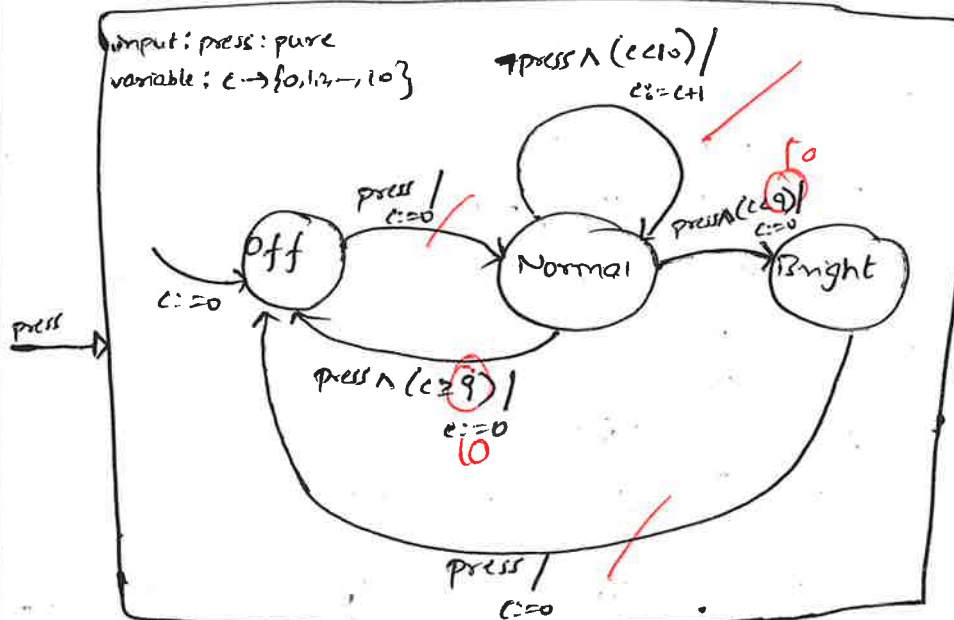 input: press: pure
variable: c → {0,1,2,-,10}
¬press ∧ (c<10) /
c:=c+1
10
press /
c:=0
press ∧ (c<9) /
c:=0
Off
Normal
Bright
c:=0
press
press ∧ (c≥9) /
c:=0
10
press /
c:=0